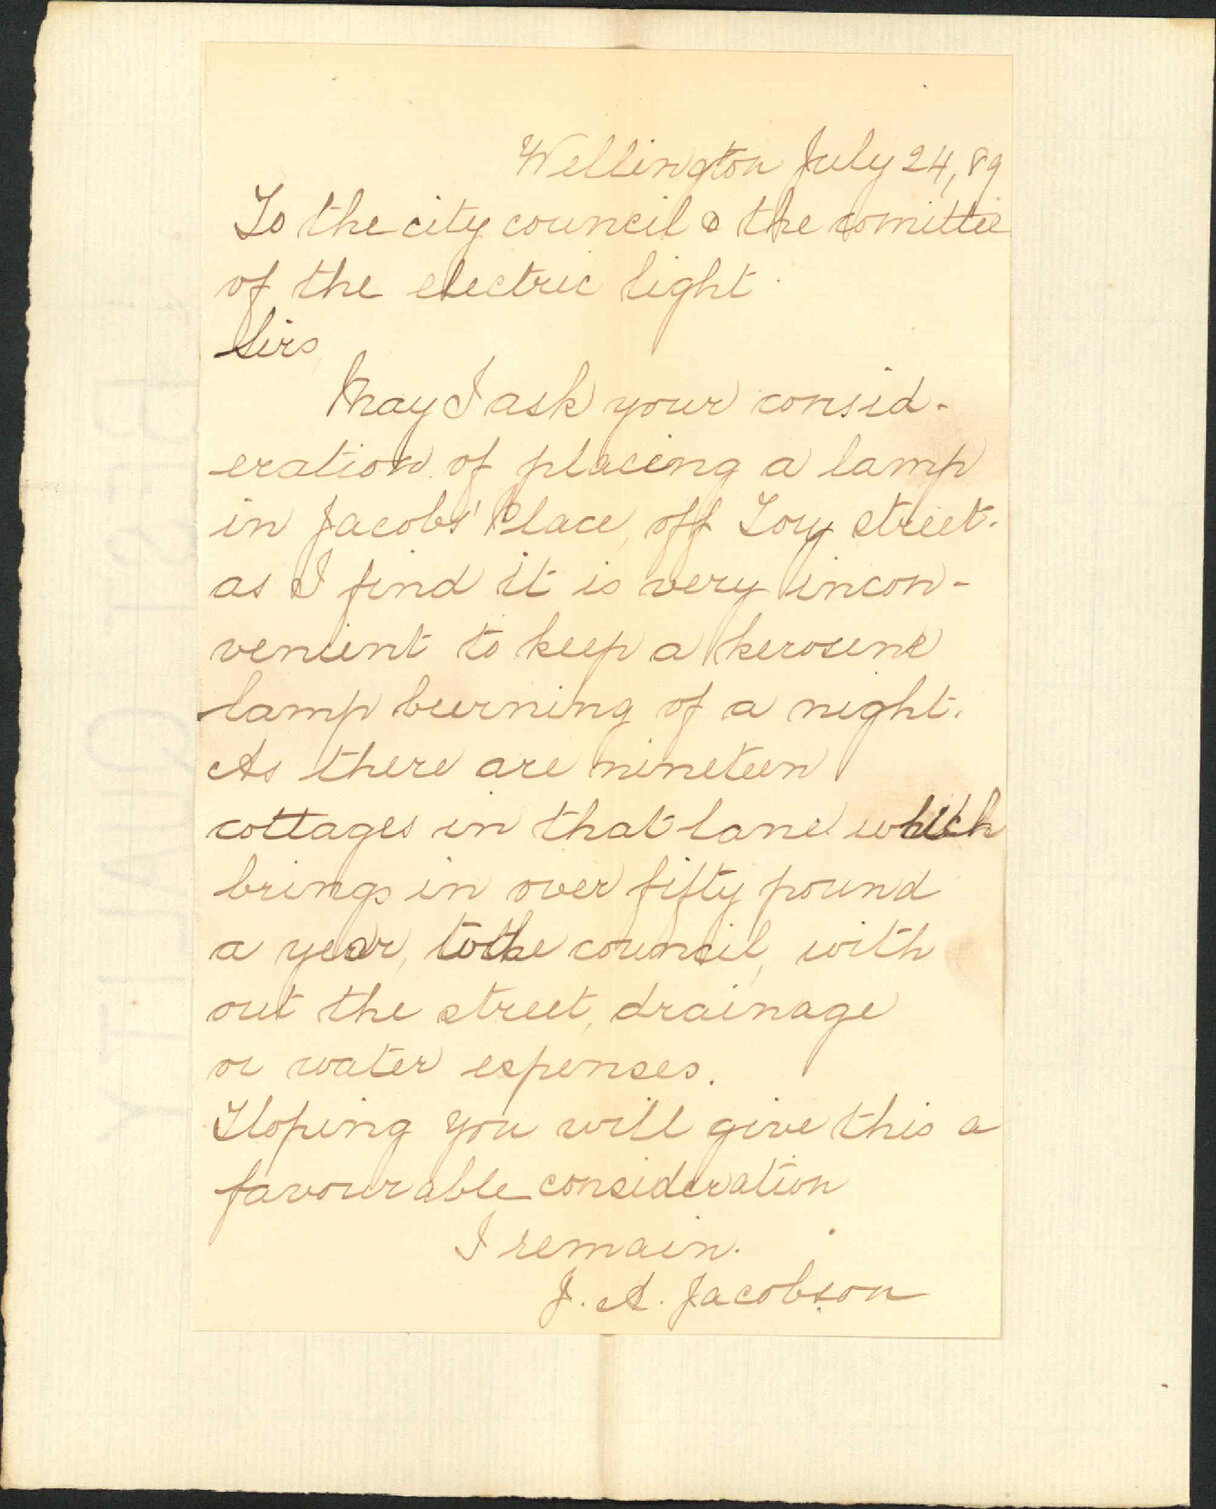 Wellington July 24, 89
To the city council & the comittee
of the electric light.
Sirs,
May I ask your consid-
eration of placing a lamp
in Jacobs' Place, off Tory street.
as I find it is very incon-
venient to keep a kerosene
lamp burning of a night.
As there are nineteen
cottages in that lane which
brings in over fifty pound
a year, to the council, with
out the street, drainage
or water expenses.
Hoping you will give this a
favourable consideration
I remain.
J. A. Jacobson